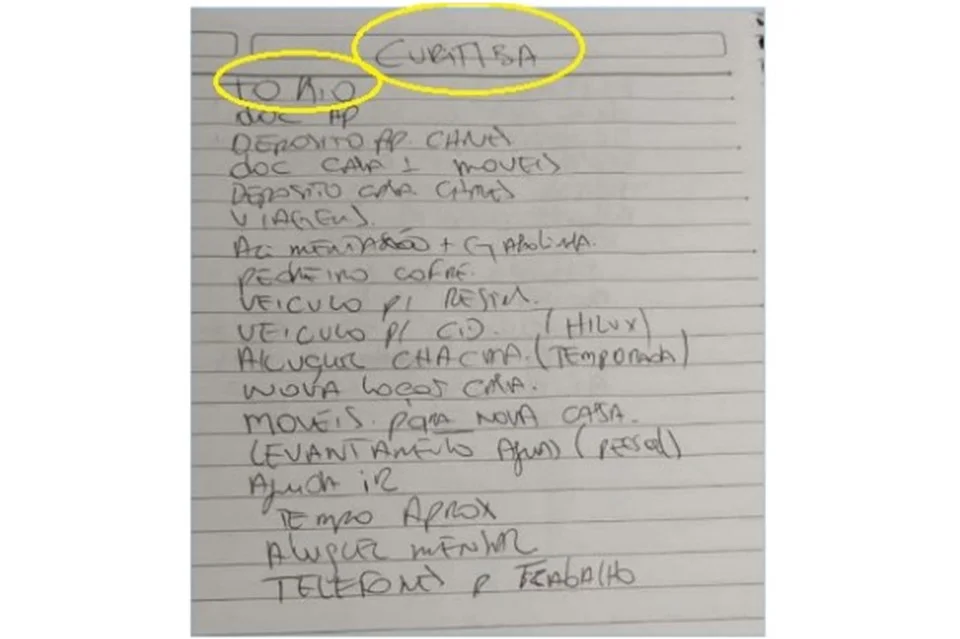 CURITIBA
TOKIO
DOC AP
DEPOSITO AP. CHAVES
DOC CASA 1 MOVEIS
DEPOSITO CASA. CHAVES
VIAGENS.
ALIMENTAÇÃO + GASOLINA.
PEDREIRO COFRE.
VEICULO P/
VEICULO P/ CID. (HILUX)
ALUGUEL CHACARA. (TEMPORADA)
NOVA CASA.
MOVEIS. para NOVA CASA.
LEVANTAMENTO (PESSOAL)
AJUDA
TEMPO APROX
ALUGUEL MENSAL
TELEFONES P TRABALHO